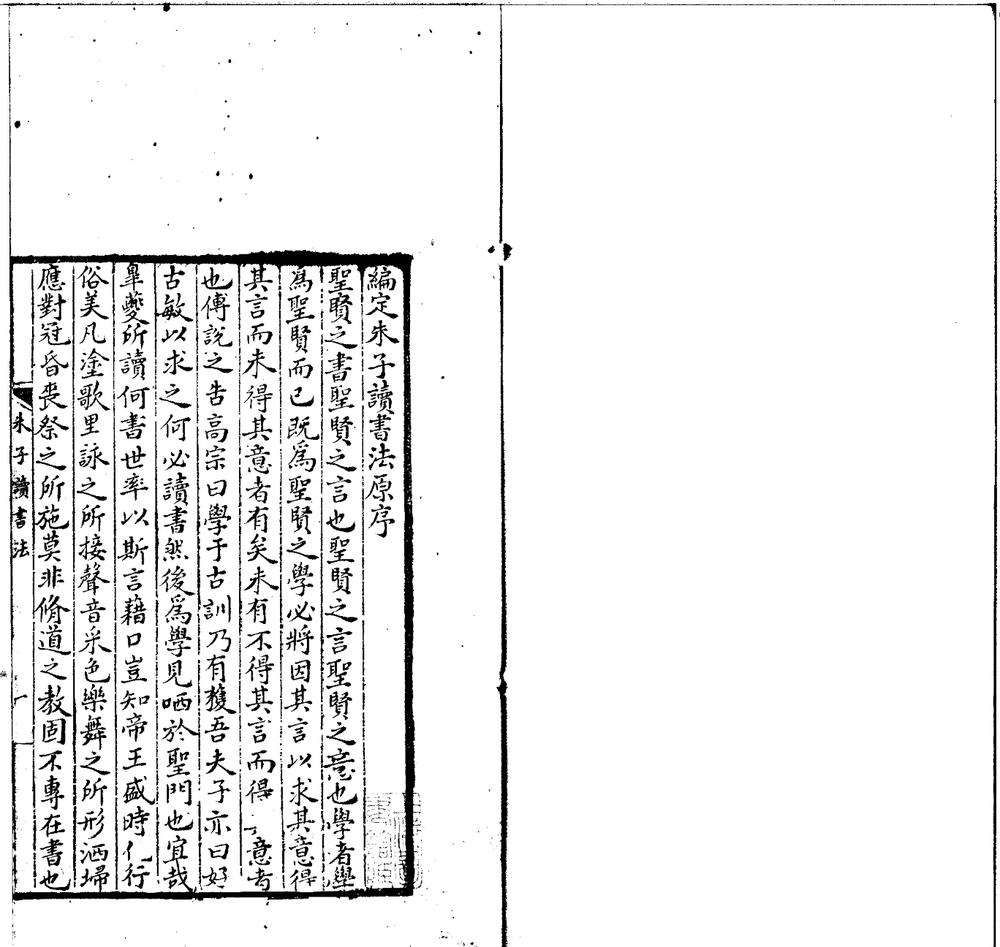 編定朱子讀書法原序
聖賢之書聖賢之言也聖賢之言聖賢之意也學者學
爲聖賢而已既爲聖賢之學必將因其言以求其意得
其言而未得其意者有矣未有不得其言而得意者
也傅說之告高宗曰學于古訓乃有獲吾夫子亦曰好
古敏以求之何必讀書然後爲學見哂於聖門也宜哉
皐夔所讀何書世率以斯言藉口豈知帝王盛時化行
俗美凡塗歌里詠之所接聲音采色樂舞之所形洒埽
應對冠昏喪祭之所施莫非脩道之教固不專在書也
朱子讀書法
一